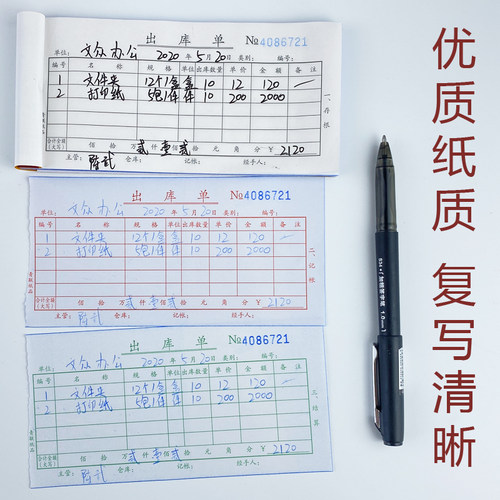 优质纸质 复写清晰
出库单 №4086721
单位: 文众办公 2020年5月20日 类别: 编号:
编号 名称 规格 单位 出库数量 单价 金额 备注
1 文件夹 12个1盒 盒 10 12 120
2 打印纸 5包1件 件 10 200 2000
合计金额(大写) 佰 拾 万 贰仟 壹佰 贰拾 元 角 分 ¥2120
主管: 仓库: 记帐: 经手人:
一、存根
出库单 №4086721
单位: 文众办公 2020年5月20日 类别: 编号:
编号 名称 规格 单位 出库数量 单价 金额 备注
1 文件夹 12个1盒 盒 10 12 120
2 打印纸 5包1件 件 10 200 2000
合计金额(大写) 佰 拾 万 贰仟 壹佰 贰拾 元 角 分 ¥2120
主管: 仓库: 记帐: 经手人:
二、记帐
出库单 №4086721
单位: 文众办公 2020年5月20日 类别: 编号:
编号 名称 规格 单位 出库数量 单价 金额 备注
1 文件夹 12个1盒 盒 10 12 120
2 打印纸 5包1件 件 10 200 2000
合计金额(大写) 佰 拾 万 贰仟 壹佰 贰拾 元 角 分 ¥2120
主管: 仓库: 记帐: 经手人:
三、结算
1.0mm